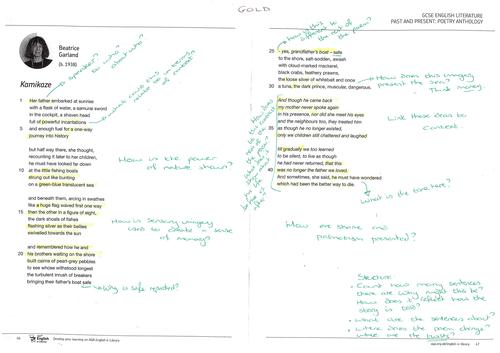 GOLD
GCSE ENGLISH LITERATURE
PAST AND PRESENT: POETRY ANTHOLOGY
Beatrice
Garland
(b. 1938)
a speaker?
to who?
about who?
Kamikaze
1 Her father embarked at sunrise
with a flask of water, a samurai sword
in the cockpit, a shaven head
full of powerful incantations
5 and enough fuel for a one-way
journey into history
but half way there, she thought,
recounting it later to her children,
he must have looked far down
10 at the little fishing boats
strung out like bunting
on a green-blue translucent sea
and beneath them, arcing in swathes
like a huge flag waved first one way
15 then the other in a figure of eight,
the dark shoals of fishes
flashing silver as their bellies
swivelled towards the sun
and remembered how he and
20 his brothers waiting on the shore
built cairns of pearl-grey pebbles
to see whose withstood longest
the turbulent inrush of breakers
bringing their father's boat safe
How is the power
of nature shown?
How is sensory imagery
used to create a sense
of memory?
Why is safe repeated?
46
English
How is this
different to the rest of
the poem?
25 – yes, grandfather's boat – safe
to the shore, salt-sodden, awash
with cloud-marked mackerel,
black crabs, feathery prawns,
the loose silver of whitebait and once
30 a tuna, the dark prince, muscular, dangerous.
How does this imagery
present the sea?
Think money.
And though he came back
my mother never spoke again
in his presence, nor did she meet his eyes
and the neighbours too, they treated him
35 as though he no longer existed,
only we children still chattered and laughed
Link these ideas to
context.
till gradually we too learned
to be silent, to live as though
he had never returned, that this
40 was no longer the father we loved.
And sometimes, she said, he must have wondered
which had been the better way to die.
What is the tone here?
How are shame and
patriotism presented?
Structure:
• Count how many sentences
there are. Why might this be?
How does it reflect how the
story is told?
• What are the sentences about?
• Where does the poem change?
47